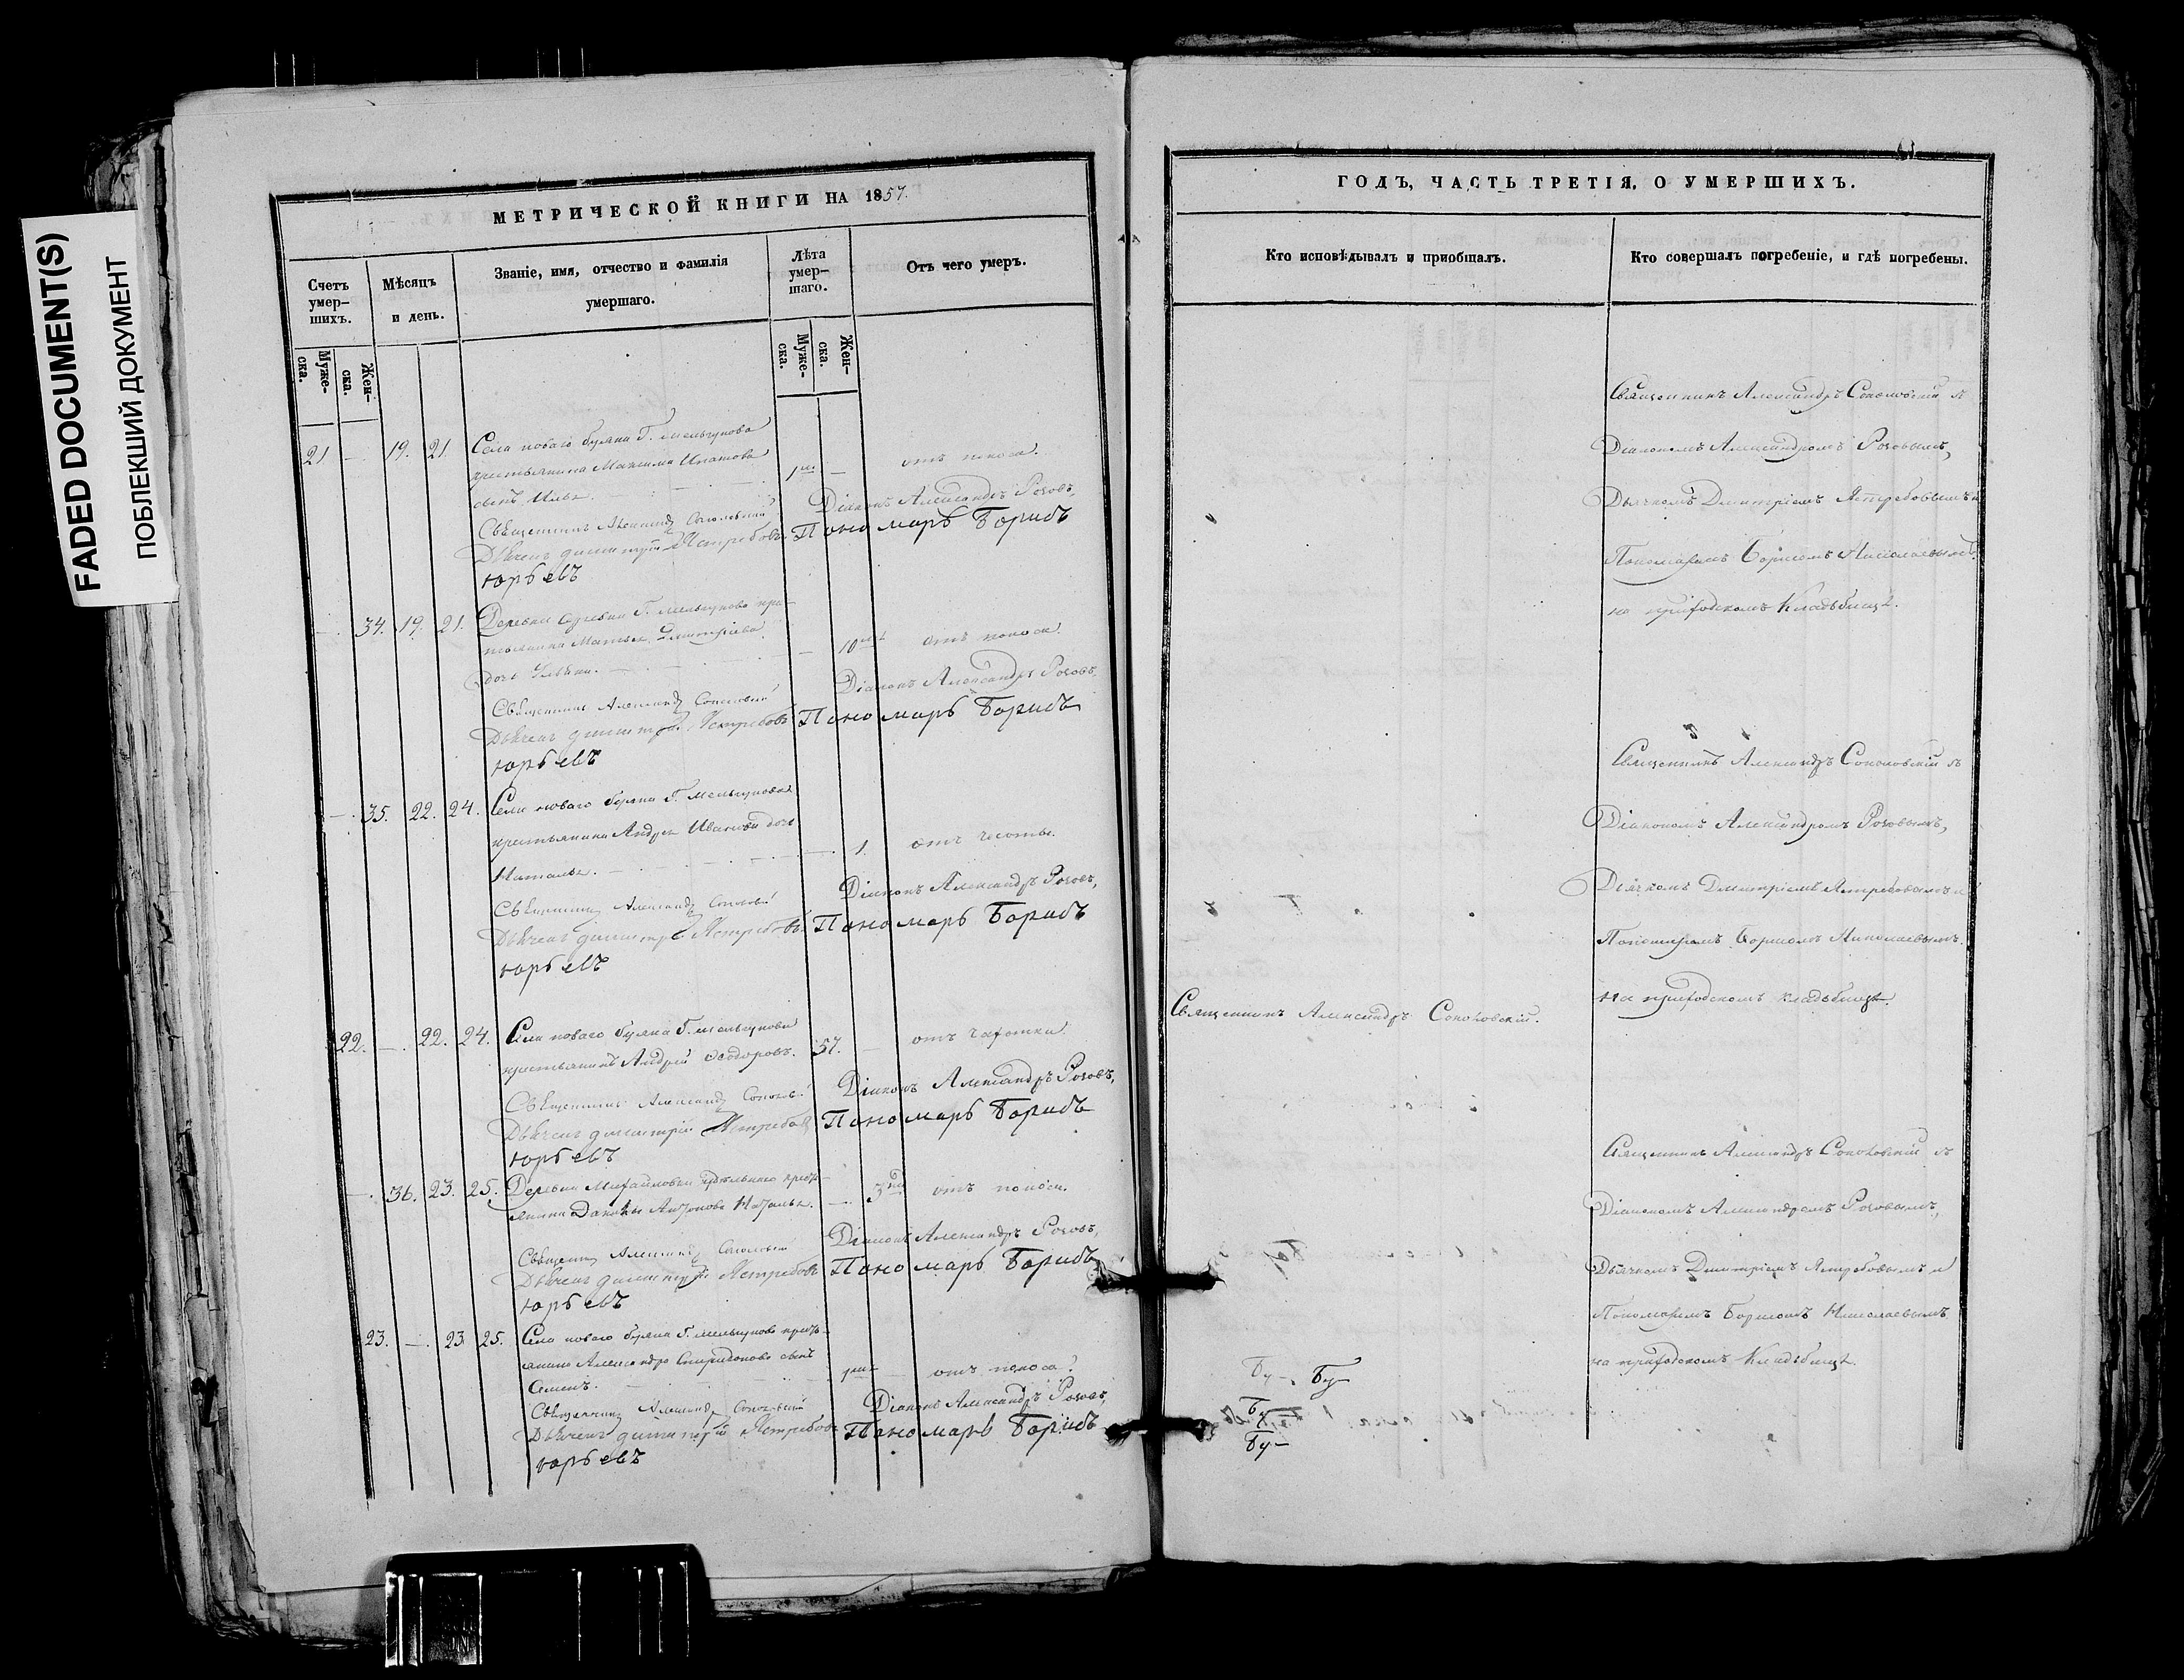 FADED DOCUMENT(S)
ПОБЛЕКШИЙ ДОКУМЕНТ
МЕТРИЧЕСКОЙ КНИГИ НА 1857.
Счетъ умер-шихъ.
Мѣсяцъ и день.
Званіе, имя, отчество и фамилія умершаго.
Лѣта умер-шаго.
Отъ чего умеръ.
Муже-ска.
Жен-ска.
Муже-ска.
Жен-ска.
21 — 19. 21. Села новаго Буяна Г. Мельгунова
крестьянина Максима Ипатова
сынъ Илья. — 1 — отъ поноса.
Священникъ Александръ Соколовскій Діаконъ Александръ Роговъ,
Дьячекъ Димитрій Ястребовъ Пономарь Борисъ
Юрьевъ
— 34. 19. 21. Деревни Г. Мельгунова кре-
стьянина Матвея Димитріева
дочь — 10 отъ поноса.
Священникъ Александръ Соколовскій Діаконъ Александръ Роговъ,
Дьячекъ Димитрій Ястребовъ Пономарь Борисъ
Юрьевъ
— 35. 22. 24. Села новаго Буяна Г. Мельгунова
крестьянина Андрея Иванова дочь
Наталья. — 1. отъ
Священникъ Александръ Діаконъ Александръ Роговъ,
Дьячекъ Димитрій Ястребовъ Пономарь Борисъ
Юрьевъ
22. — 22. 24. Села новаго Буяна Г. Мельгунова
крестьянинъ Андрей Ѳеодоровъ. 57. — отъ чахотки.
Священникъ Александръ Діаконъ Александръ Роговъ,
Дьячекъ Димитрій Ястребовъ Пономарь Борисъ
Юрьевъ
— 36. 23. 25. Деревни Михайловки кресть-
янина Антонова Наталья. — 3 отъ поноса.
Священникъ Александръ Соколовскій Діаконъ Александръ Роговъ,
Дьячекъ Димитрій Ястребовъ Пономарь Борисъ
Юрьевъ
23. — 23 25. Села новаго Буяна Г. Мельгунова кресть-
янина Александра Спиридонова сынъ
Семенъ. — отъ поноса.
Священникъ Александръ Соколовскій Діаконъ Александръ Роговъ,
Дьячекъ Димитрій Ястребовъ Пономарь Борисъ
Юрьевъ
ГОДЪ, ЧАСТЬ ТРЕТІЯ, О УМЕРШИХЪ.
Кто исповѣдывалъ и пріобщалъ.
Кто совершалъ погребеніе, и гдѣ погребены.
Священникъ Александръ Соколовскій съ
Діакономъ Александромъ Роговымъ,
Дьячкомъ Димитріемъ Ястребовымъ и
Пономаремъ Борисомъ Николаевымъ
на приходскомъ кладбищѣ.
Священникъ Александръ Соколовскій съ
Діакономъ Александромъ Роговымъ,
Дьячкомъ Димитріемъ Ястребовымъ и
Пономаремъ Борисомъ Николаевымъ.
на приходскомъ кладбищѣ.
Священникъ Александръ Соколовскій.
Священникъ Александръ Соколовскій съ
Діакономъ Александромъ Роговымъ,
Дьячкомъ Димитріемъ Ястребовымъ и
Пономаремъ Борисомъ Николаевымъ
на приходскомъ кладбищѣ.
Бу-, Бу-
Бу
Бу-